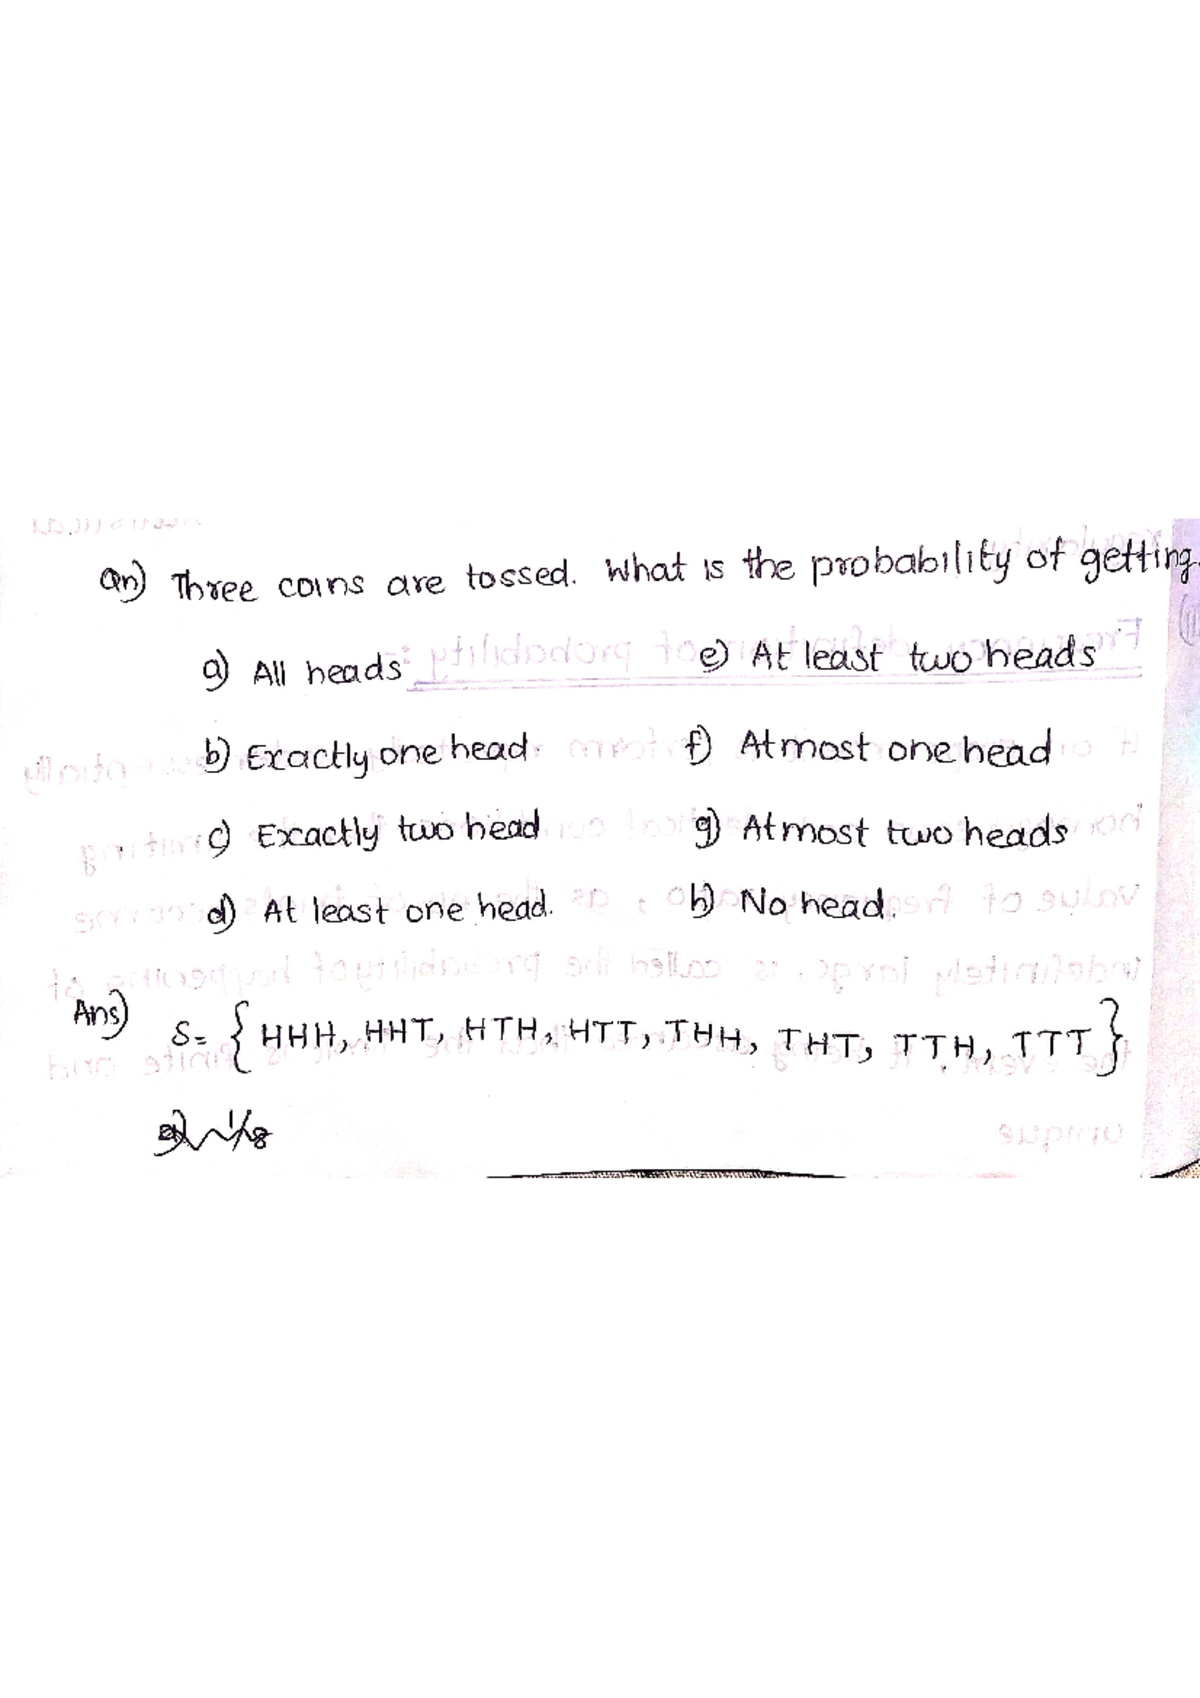 Qn) Three coins are tossed. What is the probability of getting.
a) All heads
e) At least two heads
b) Exactly one head.
f) Atmost one head
c) Exactly two head
g) Atmost two heads
d) At least one head.
h) No head.
Ans) S= {HHH, HHT, HTH, HTT, THH, THT, TTH, TTT}
a) 1/8